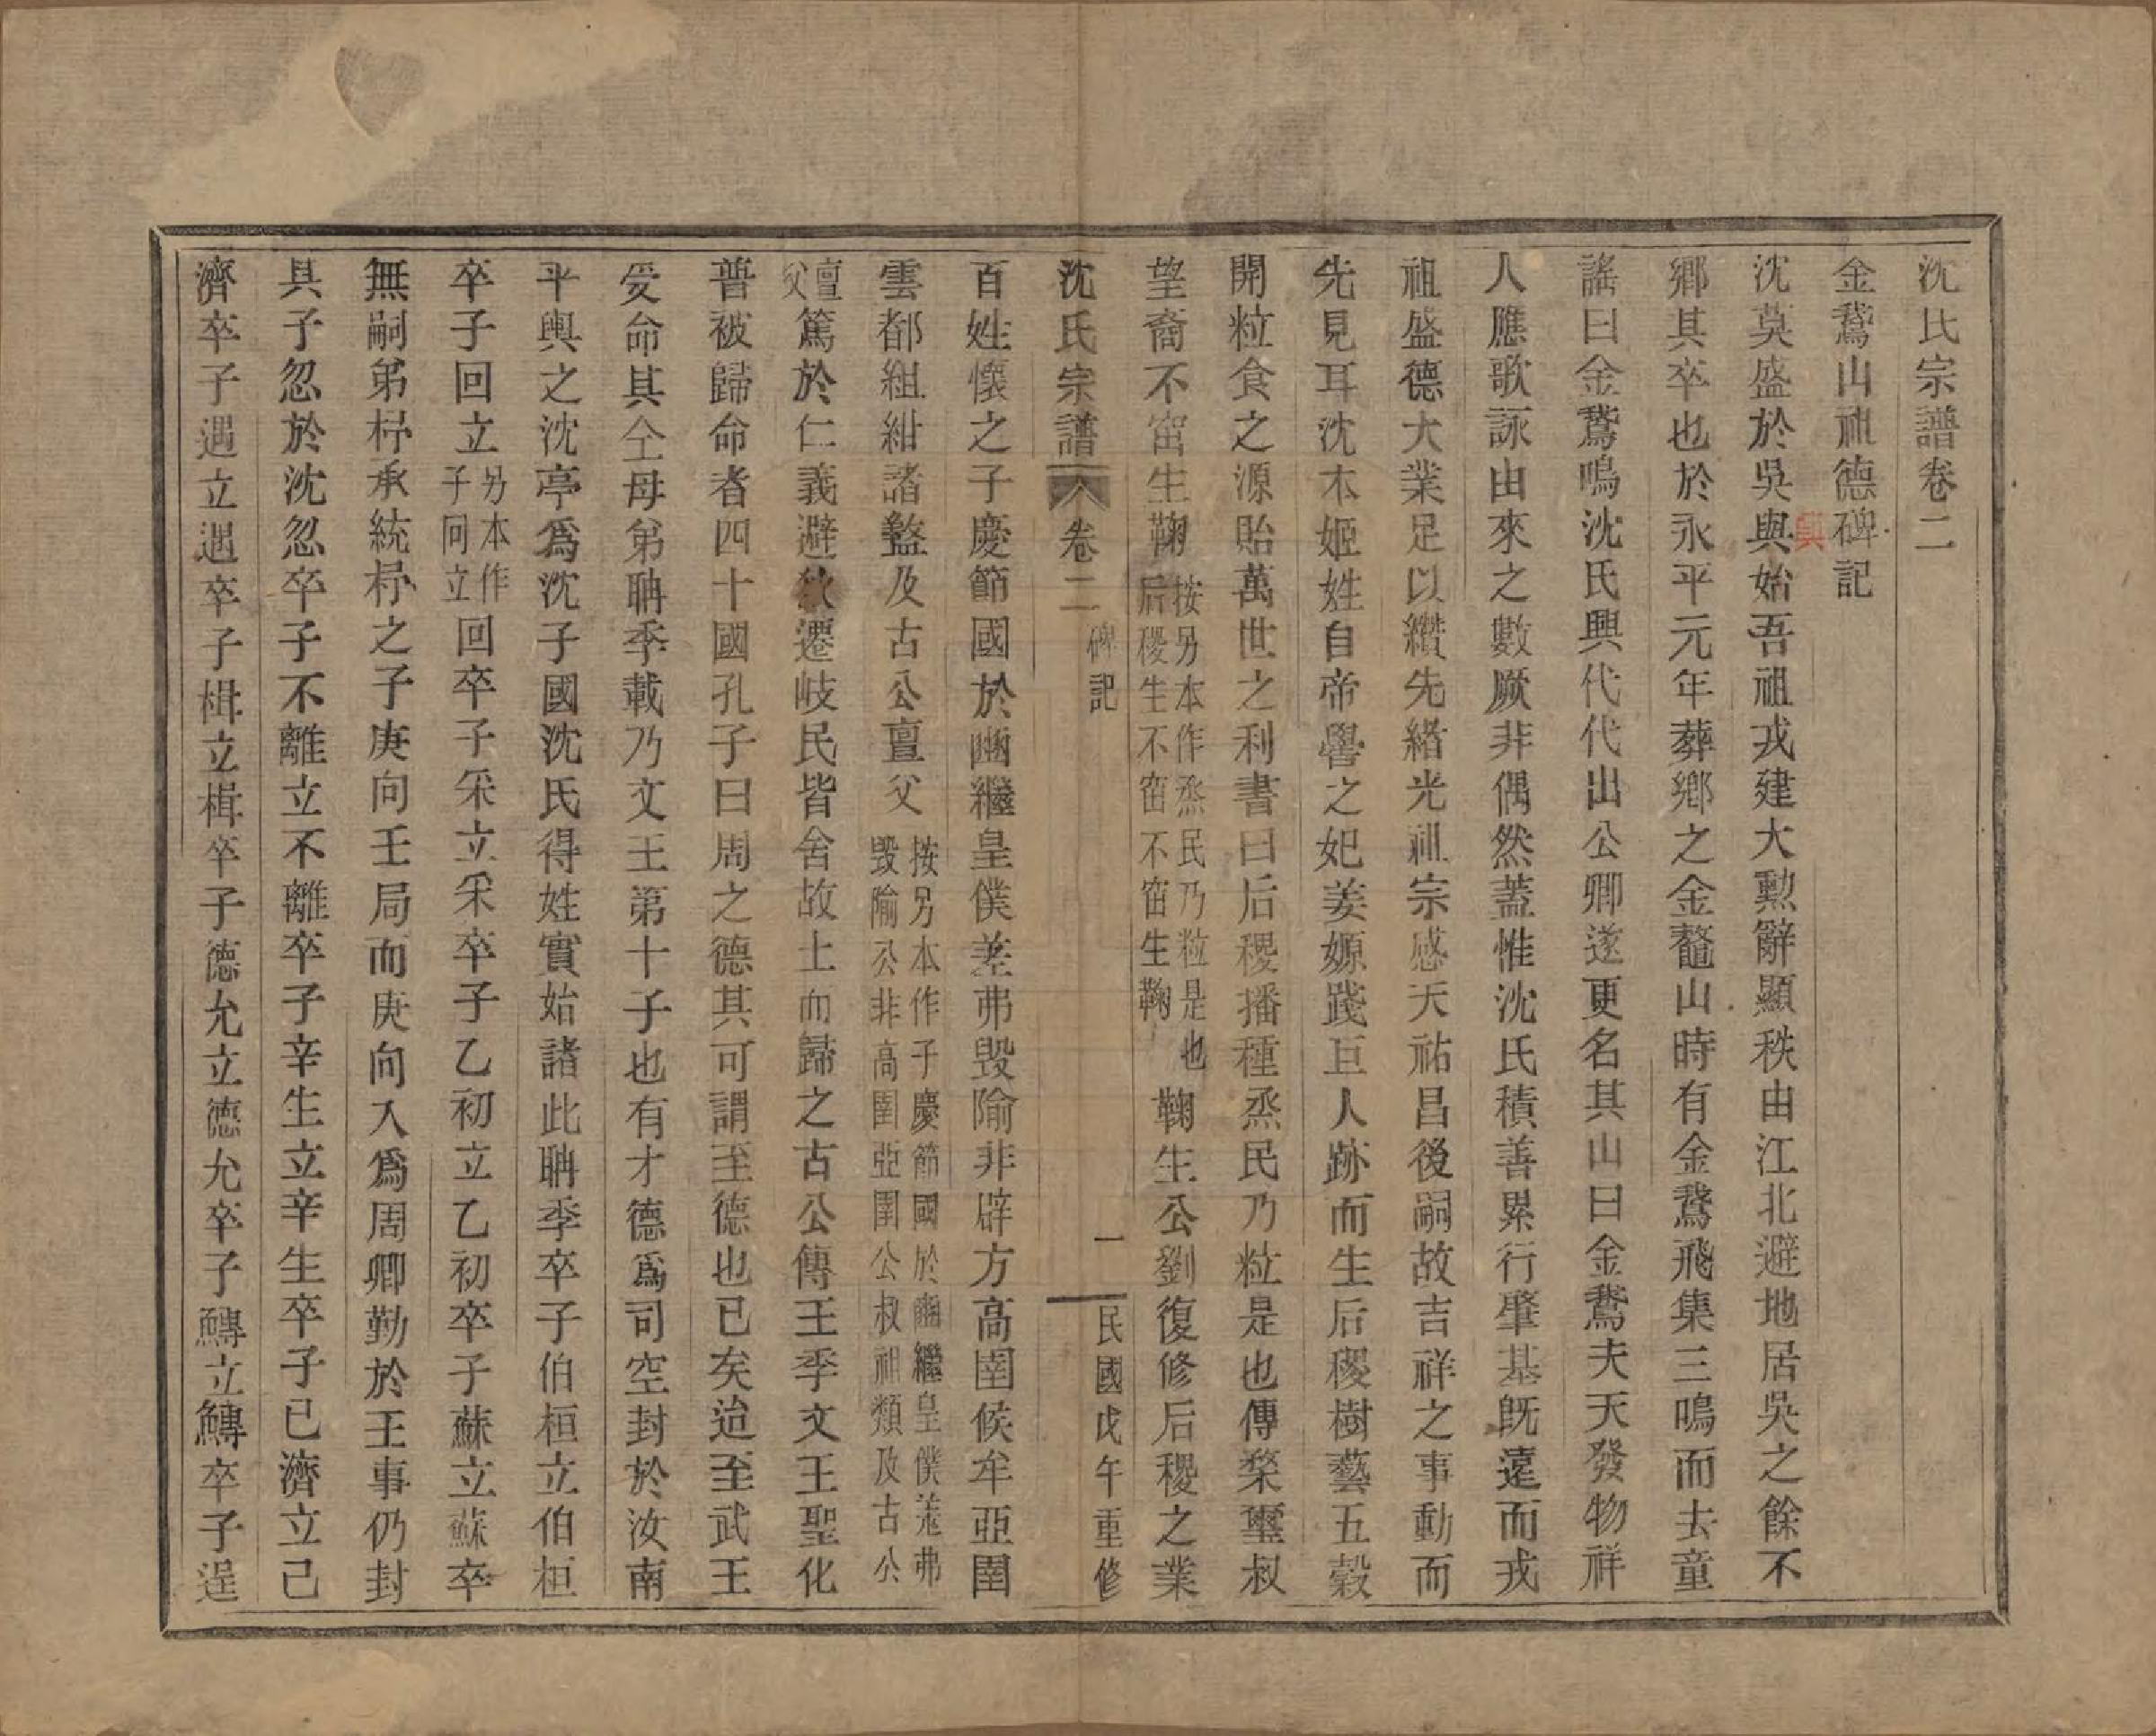 沈氏宗譜卷二
金鵞山祖德碑記
沈莫盛於吳與始吾祖戎建大勲辭顯秩由江北避地居吳之餘不
鄉其卒也於永平元年葬鄉之金鼇山時有金鵞飛集三鳴而去童
謠曰金鵞鳴沈氏興代代出公卿遂更名其山曰金鵞夫天發物祥
人應歌詠由來之數厥非偶然蓋惟沈氏積善累行肇基旣遠而戎
祖盛德大業足以纘先緒光祖宗感天祐昌後嗣故吉祥之事動而
先見耳沈本姬姓自帝嚳之妃姜嫄踐巨人跡而生后稷樹藝五穀
開粒食之源貽萬世之利書曰后稷播種烝民乃粒是也傳漦璽叔
望裔不窋生鞠按另本作烝民乃粒是也后稷生不窋不窋生鞠鞠生公劉復修后稷之業
沈氏宗譜 卷二 碑記 一 民國戊午重修
百姓懷之子慶節國於豳繼皇僕差弗毀隃非辟方高圉侯牟亞圉
雲都組紺諸盩及古公亶父按另本作子慶節國於豳繼皇僕差弗毀隃公非高圉亞圉公叔祖類及古公
亶父篤於仁義避狄遷岐民皆舍故土而歸之古公傳王季文王聖化
普被歸命者四十國孔子曰周之德其可謂至德也已矣迨至武王
受命其仝母弟聃季載乃文王第十子也有才德爲司空封於汝南
平輿之沈亭爲沈子國沈氏得姓實始諸此聃季卒子伯桓立伯桓
卒子回立另本作子冋立回卒子采立采卒子乙初立乙初卒子蘇立蘇卒
無嗣弟杼承統杼之子庚向壬局而庚向入爲周卿勤於王事仍封
具子忽於沈忽卒子不離立不離卒子辛生立辛生卒子己濟立己
濟卒子遇立遇卒子楫立楫卒子德允立德允卒子鱄立鱄卒子逞